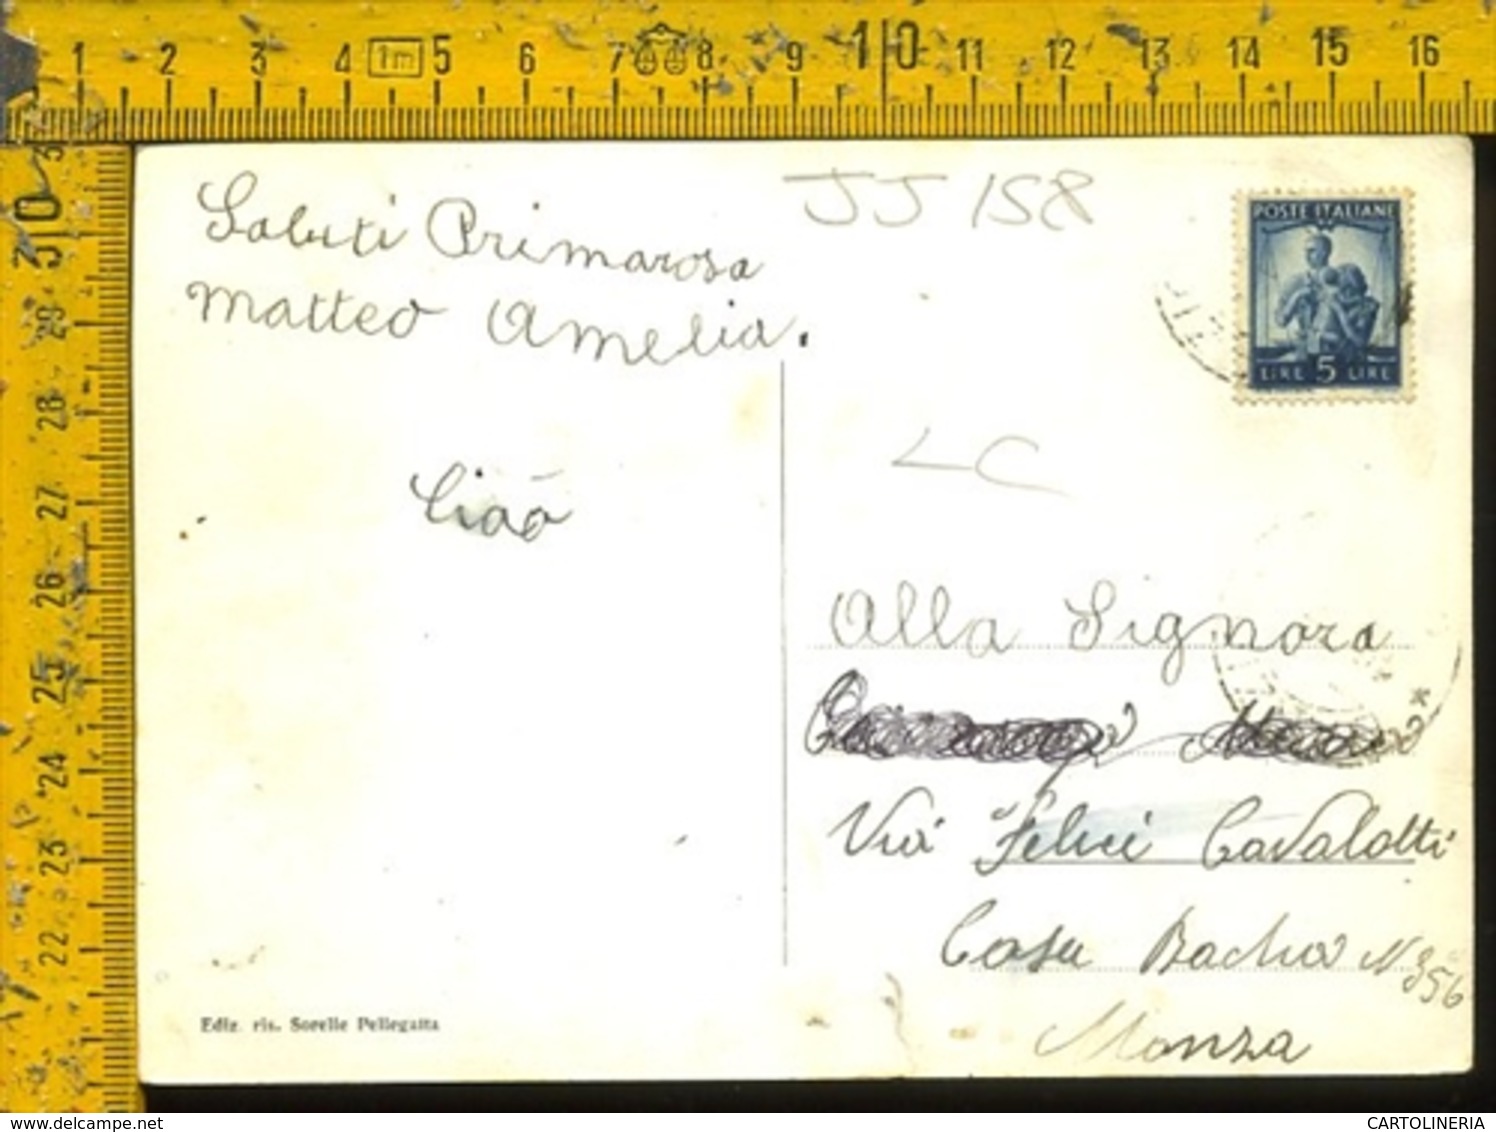 1 2 3 4 1m 5 6 7 8 9 10 11 12 13 14 15 16
30 29 28 27 26 25 24 23 22
JJ 158
POSTE ITALIANE
LIRE 5 LIRE
Saluti Primarosa
Matteo Amelia.
Ciao
LC
Alla Signora
Via Felice Cavalotti
Casa Bacha N 356
Monza
Ediz. ris. Sorelle Pellegatta
www.delcampe.net
CARTOLINERIA